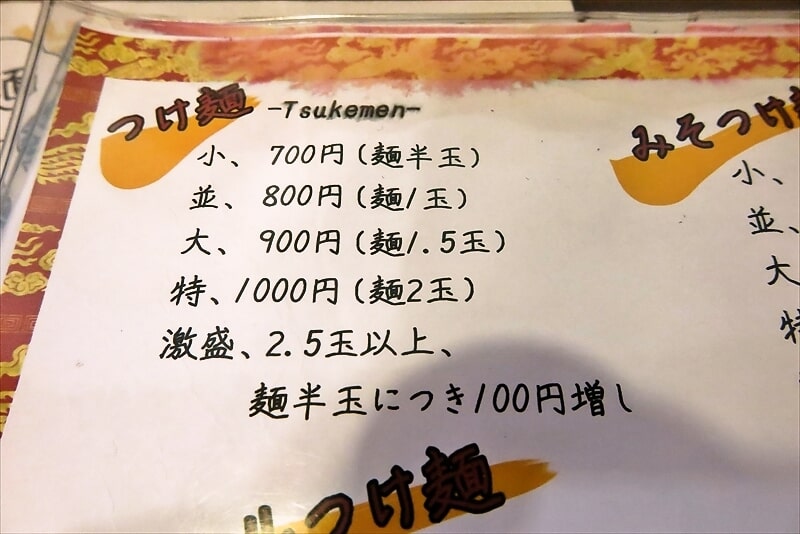 つけ麺 -Tsukemen-
小、700円(麺半玉)
並、800円(麺1玉)
大、900円(麺1.5玉)
特、1000円(麺2玉)
激盛、2.5玉以上、
麺半玉につき100円増し
つけ麺
みそつけ麺
小、
並、
大
特